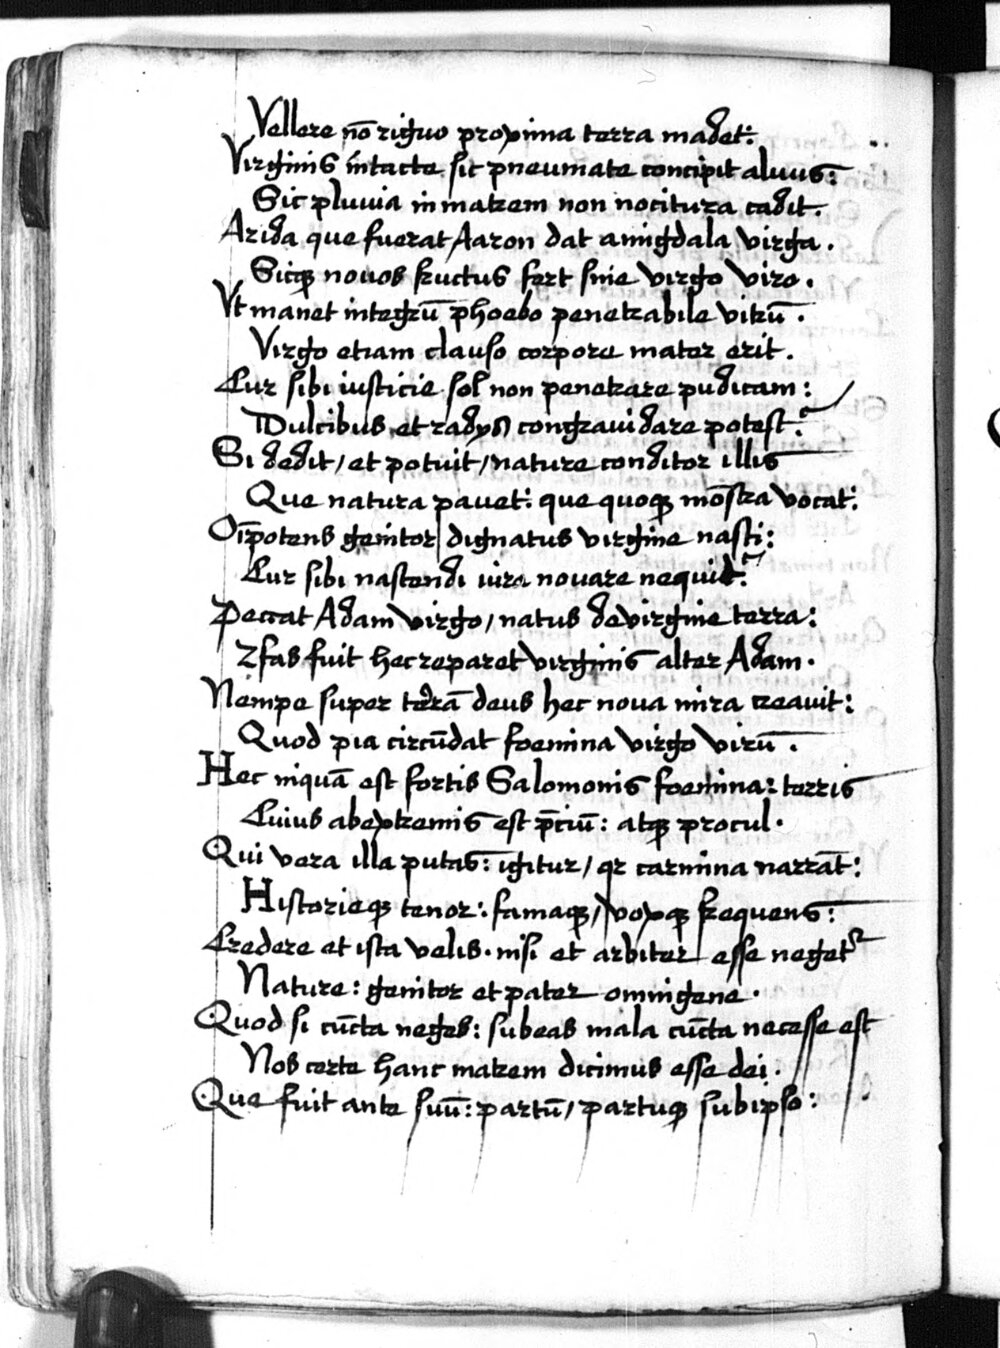 Vellere nō riguo proxima terra madet:
Virginis intacte sic pneumate concipit aluus:
Sic pluuia in matrem non nocitura cadit.
Arida que fuerat Aaron dat amigdala virga.
Sicqꝫ nouos fructus fert sine virgo viro.
Vt manet integrū phoebo penetrabile vitrū.
Virgo etiam clauso corpore mater erit.
Cur sibi iusticie sol non penetrare pudicam:
Dulcibus et radijs congrauidare potest?
Si dedit / et potuit / nature conditor illis
Que natura pauet: que quoqꝫ mōstra vocat:
Oīpotens genitor dignatus virgine nasci:
Cur sibi nascendi iura nouare nequid?
Peccat Adam virgo / natus de virgine terra:
fas fuit hec reparet virginis alter Adam.
Nempe super terrā deus hec noua mira creauit:
Quod pia circūdat foemina virgo virū.
Hec inquā est fortis Salomonis foemina: terris
Cuius ab extremis est p̄ciū: atqꝫ procul.
Qui vera illa putas: igitur / qr carmina narrāt:
Historieqꝫ tenor: famaqꝫ / voxqꝫ frequens:
Credere et ista velis. nisi et arbiter esse neget
Nature: genitor et pater omnigene.
Quod si cūcta neges: subeas mala cūcta necesse est
Nos certe hanc matrem dicimus esse dei.
Que fuit ante suū: partū / partuqꝫ sub ipso: